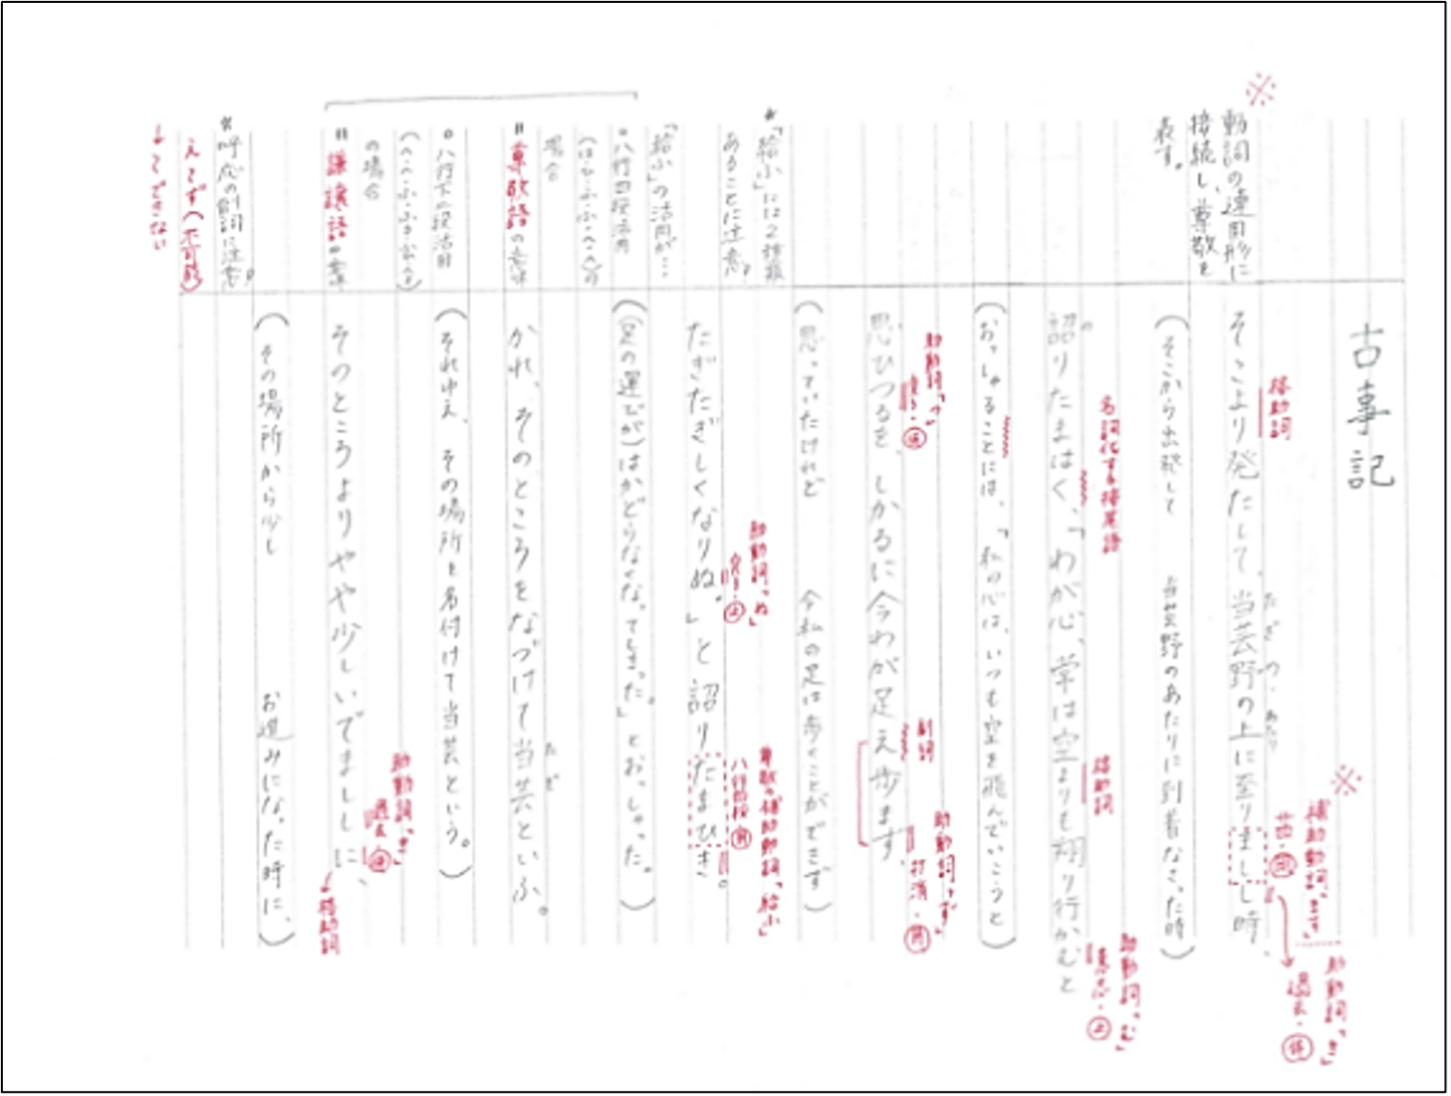 古事記
※
動詞の連用形に
接続し、尊敬を
表す。
接助詞
そこより発たして、当芸野の上に至りましし時、
たぎの
あたり
※
補助動詞「ます」
助動詞「き」
過去・体
（そこから出発して 当芸野のあたりに到着なさった時）
名詞化する接尾語
格助詞
助動詞「む」
意志・止
詔りたまはく、「わが心、常は空より翔り行かむと
（おっしゃることには、「私の心は、いつも空を飛んでいこうと
助動詞「つ」
副詞
助動詞「ず」
打消・用
思ひつるを、しかるに今わが足え歩まず、
（思っていたけれど 今私の足は歩くことができず）
*「給ふ」には2種類
あることに注意!
助動詞「ぬ」
完了・止
尊敬の補助動詞「給ふ」
八行四段 用
たぎたぎしくなりぬ。」と詔りたまひき。
「給ふ」の活用が…
。八行四段活用
（は・ひ・ふ・ふ・へ・へ）の
場合
＝尊敬語の意味
（足の運びが）はかどらなくなってしまった。」とおっしゃった。）
かれ、そのところをなづけて当芸といふ。
たぎ
。八行下二段活用
（それゆえ、その場所を名付けて当芸という。）
の場合
＝謙譲語の意味
助動詞「き」
過去・連
そのところよりやや少しいでまししに、
→接助詞
（その場所から少し お進みになった時に、）
*呼応の副詞に注意!
え〜ず（不可能）
→〜できない